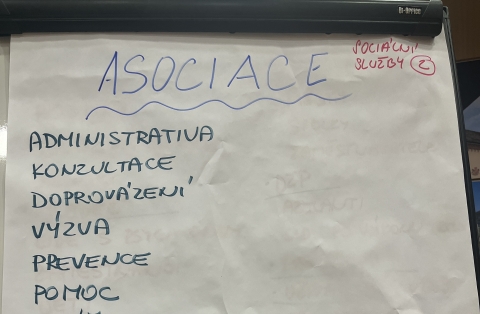 Bi-Office
SOCIÁLNÍ
SLUŽBY 2
ASOCIACE
ADMINISTRATIVA
KONZULTACE
DOPROVÁZENÍ
VÝZVA
PREVENCE
POMOC